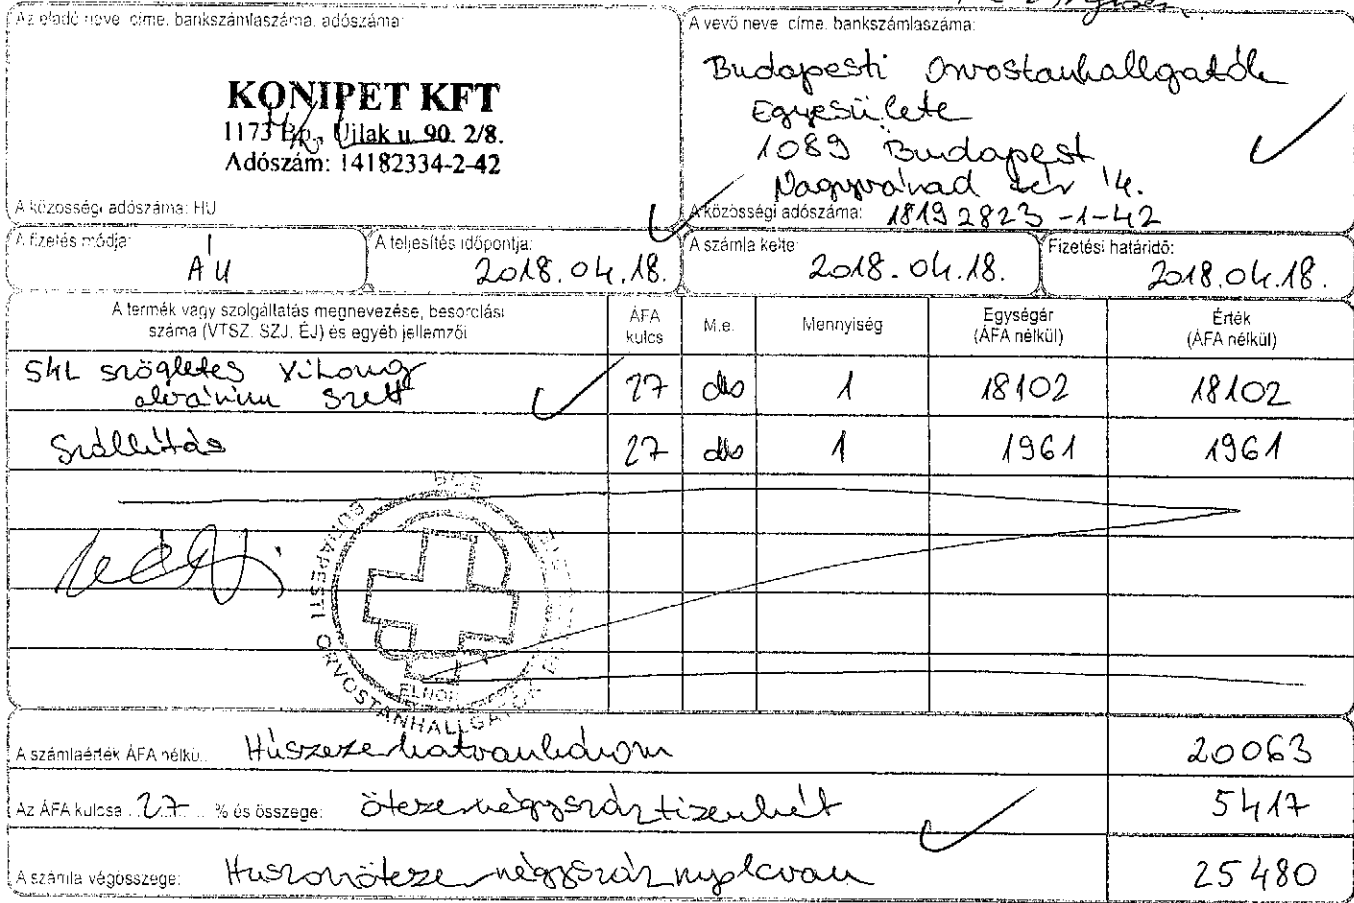 Az eladó neve címe, bankszámlaszáma, adószáma:
KONIPET KFT
1173 Bp., Ujlak u. 90. 2/8.
Adószám: 14182334-2-42
A közösségi adószáma: HU
A vevő neve címe, bankszámlaszáma:
Budapesti Orvostanhallgatók
Egyesülete
1089 Budapest
Nagyvárad tér 4.
A közösségi adószáma: 18192823-1-42
A fizetés módja:
ÁU
A teljesítés időpontja:
2018.04.18.
A számla kelte:
2018.04.18.
Fizetési határidő:
2018.04.18.
A termék vagy szolgáltatás megnevezése, besorolási
száma (VTSZ. SZJ. ÉJ) és egyéb jellemzői
ÁFA
kulcs
M.e.
Mennyiség
Egységár
(ÁFA nélkül)
Érték
(ÁFA nélkül)
54L szögletes Vikong
akvárium szett 27 db 1 18102 18102
Szállítás 27 db 1 1961 1961
BOE
BUDAPESTI ORVOSTANHALLGATÓK
ELNÖK
A számlaérték ÁFA nélkül: Húszezerhatvanhárom 20063
Az ÁFA kulcsa 27 % és összege: ötezernégyszáztizenhét 5417
A számla végösszege: Huszonötezernégyszáznyolcvan 25480